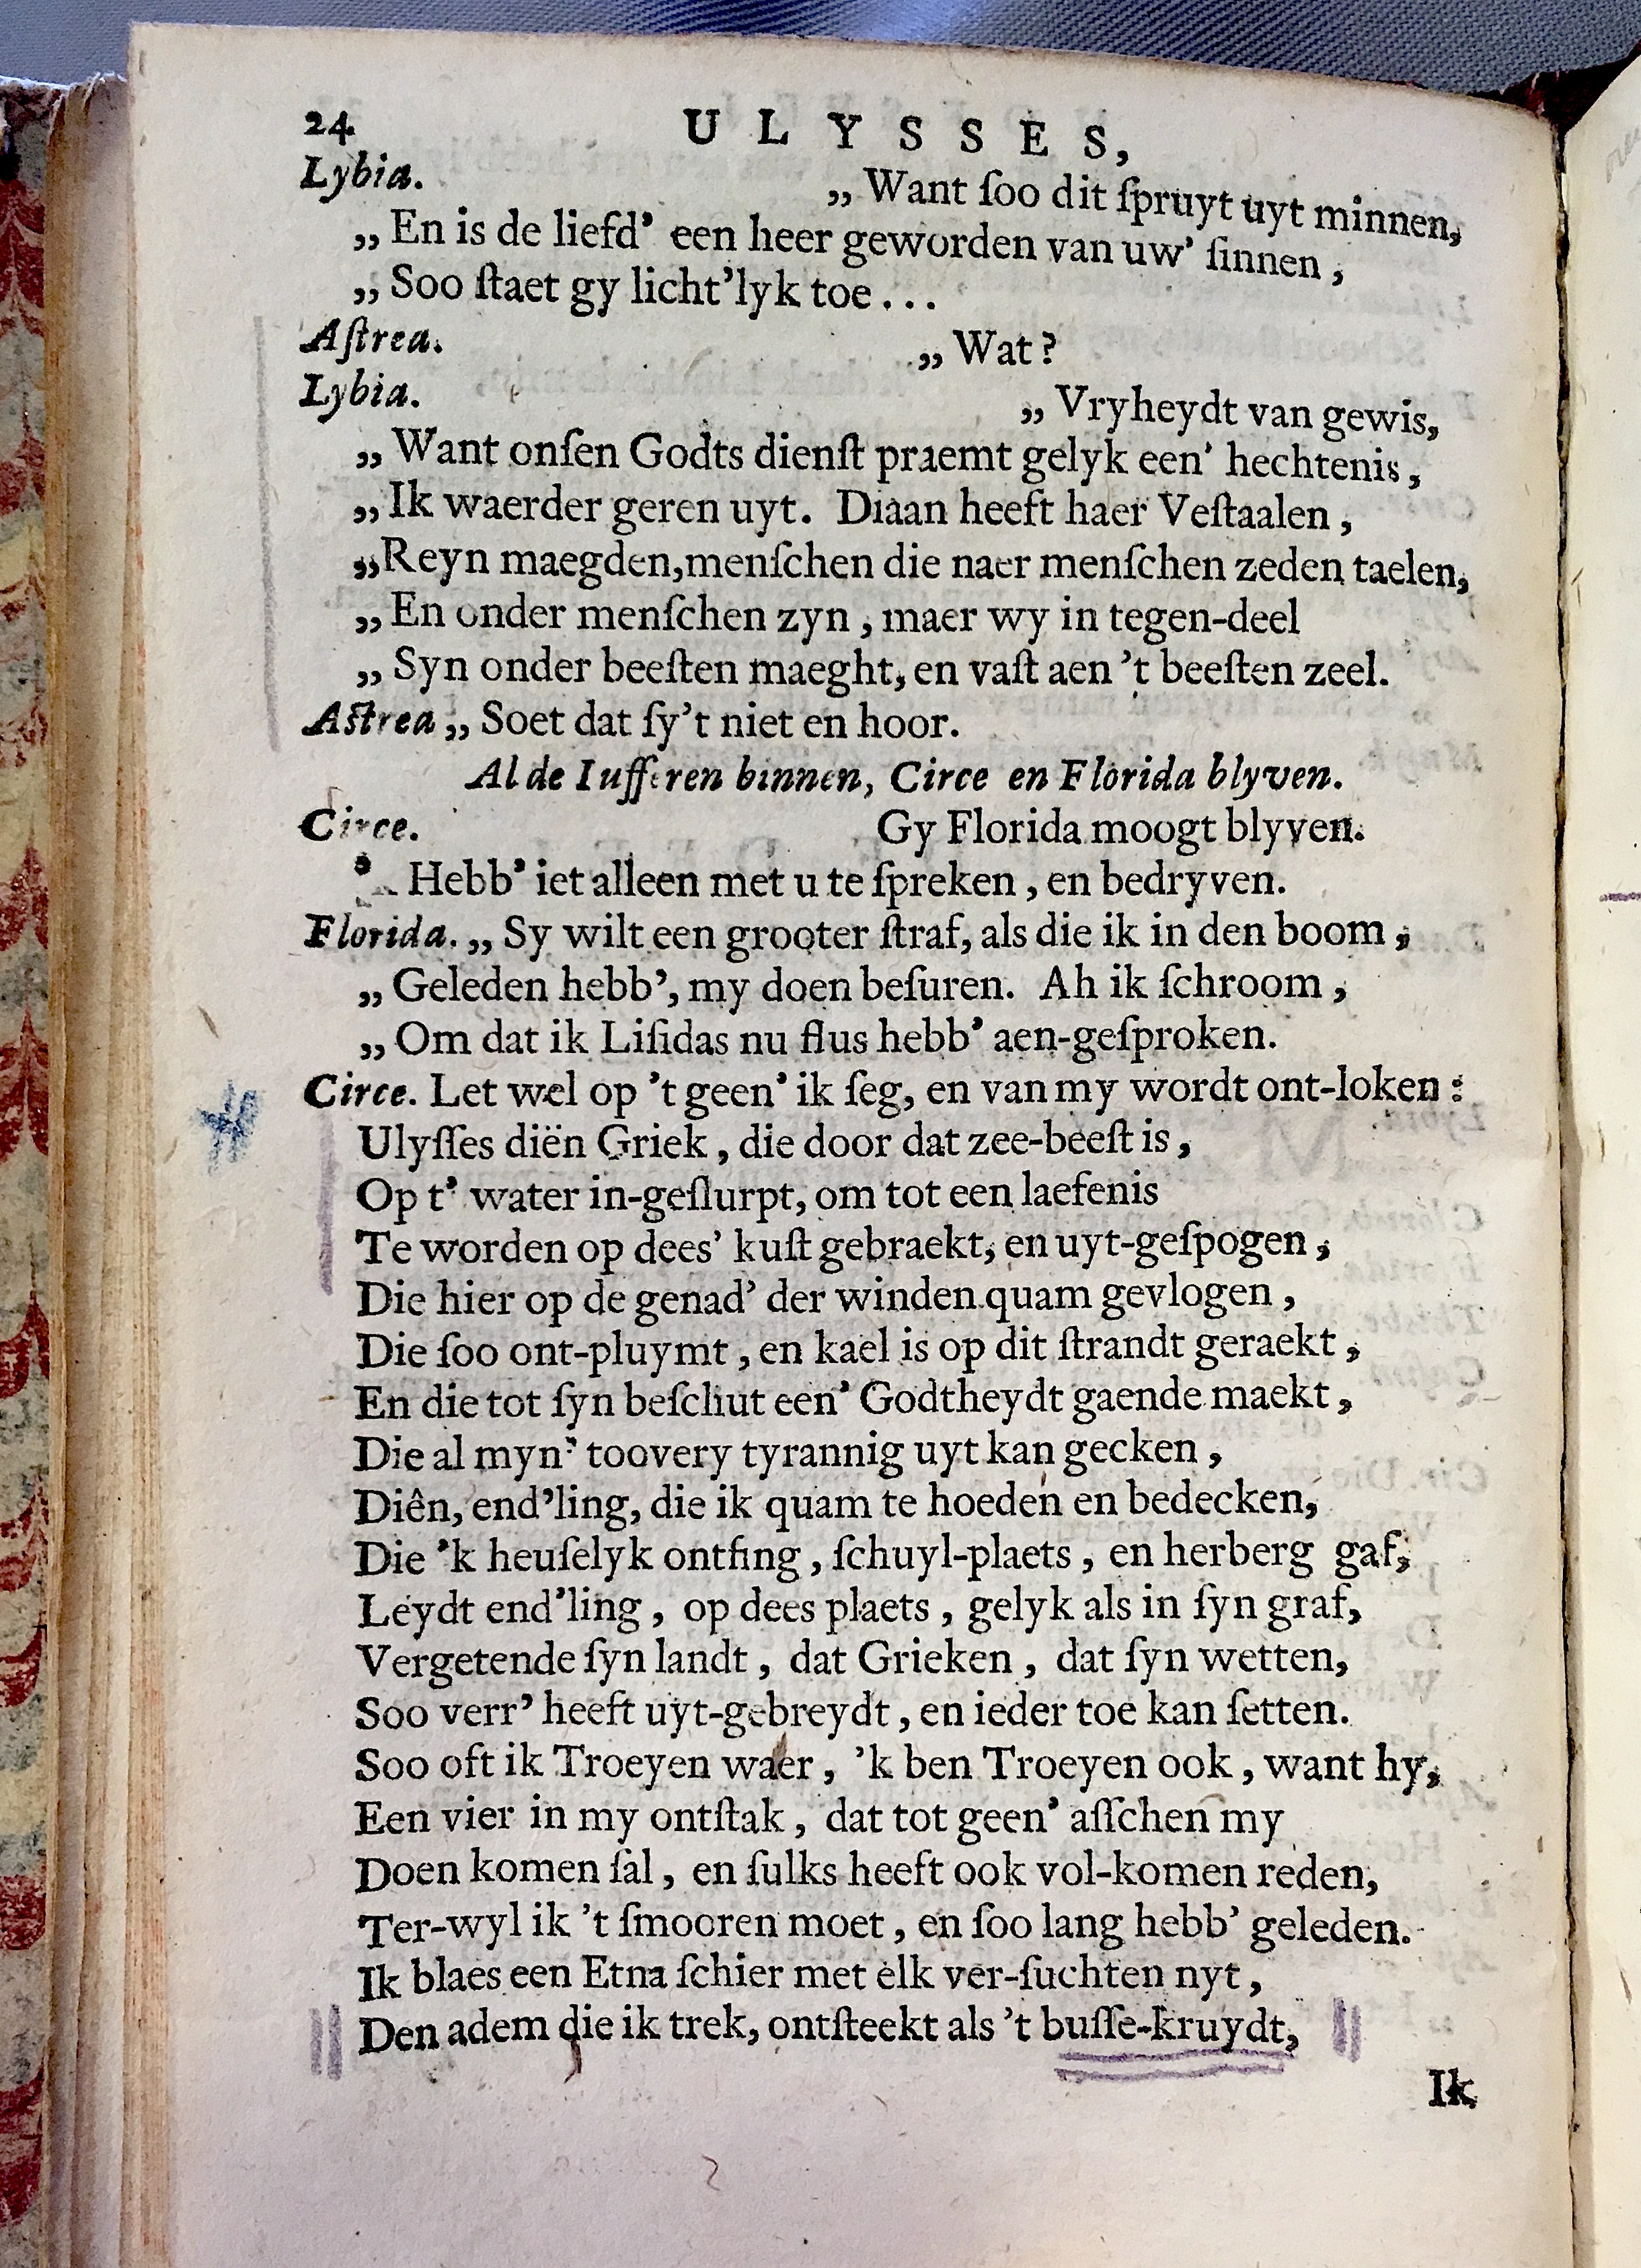 24 ULYSSES,
Lybia. „ Want ſoo dit ſpruyt uyt minnen,
„ En is de liefd’ een heer geworden van uw’ ſinnen,
„ Soo ſtaet gy licht’lyk toe...
Aſtrea. „ Wat?
Lybia. „ Vryheydt van gewis,
„ Want onſen Godts dienſt praemt gelyk een’ hechtenis,
„ Ik waerder geren uyt. Diaan heeft haer Veſtaalen,
„ Reyn maegden, menſchen die naer menſchen zeden taelen,
„ En onder menſchen zyn, maer wy in tegen-deel
„ Syn onder beeſten maeght, en vaſt aen ’t beeſten zeel.
Aſtrea „ Soet dat ſy’t niet en hoor.
Al de Iufferen binnen, Circe en Florida blyven.
Circe. Gy Florida moogt blyven.
Hebb’ iet alleen met u te ſpreken, en bedryven.
Florida. „ Sy wilt een grooter ſtraf, als die ik in den boom,
„ Geleden hebb’, my doen beſuren. Ah ik ſchroom,
„ Om dat ik Liſidas nu flus hebb’ aen-geſproken.
Circe. Let wel op ’t geen’ ik ſeg, en van my wordt ont-loken:
Ulyſſes diën Griek, die door dat zee-beeſt is,
Op t’ water in-geſlurpt, om tot een laefenis
Te worden op dees’ kuſt gebraekt, en uyt-geſpogen,
Die hier op de genad’ der winden quam gevlogen,
Die ſoo ont-pluymt, en kael is op dit ſtrandt geraekt,
En die tot ſyn beſchut een’ Godtheydt gaende maekt,
Die al myn’ toovery tyrannig uyt kan gecken,
Diên, end’ling, die ik quam te hoeden en bedecken,
Die ’k heuſelyk ontfing, ſchuyl-plaets, en herberg gaf,
Leydt end’ling, op dees plaets, gelyk als in ſyn graf,
Vergetende ſyn landt, dat Grieken, dat ſyn wetten,
Soo verr’ heeft uyt-gebreydt, en ieder toe kan ſetten.
Soo oft ik Troeyen waer, ’k ben Troeyen ook, want hy,
Een vier in my ontſtak, dat tot geen’ aſſchen my
Doen komen ſal, en ſulks heeft ook vol-komen reden,
Ter-wyl ik ’t ſmooren moet, en ſoo lang hebb’ geleden.
Ik blaes een Etna ſchier met elk ver-ſuchten nyt,
Den adem die ik trek, ontſteekt als ’t buſſe-kruydt,
Ik